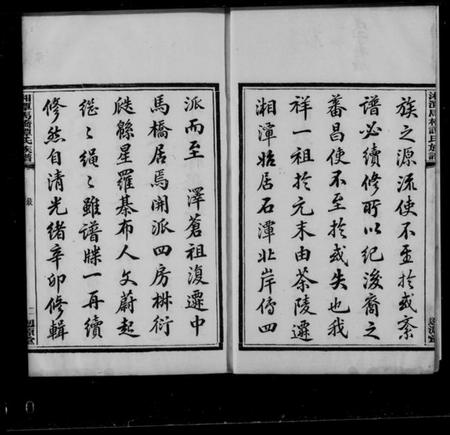 族之源流使不至於或紊
譜必續修所以紀後裔之
蕃昌使不至於或失也我
祥一祖於元末由茶陵遷
湘潭始居石潭北岸傳四
派而至　澤蒼祖復遷中
馬橋居焉開派四房椒衍
瓞緜星羅棊布人文蔚起
繼〻繩〻雖譜牒一再續
修然自清光緒辛卯修輯